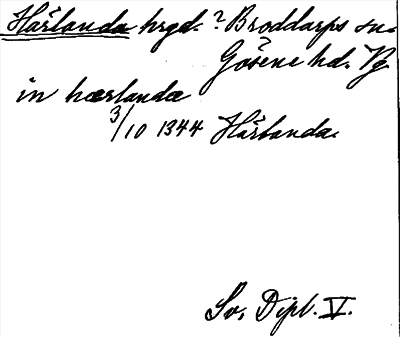 Härlanda hrgd. ? Broddarps sn.
Gäsene hd. Vg.
in hærlanda
3/10 1344 Härlanda.
Sv. Dipl. V.